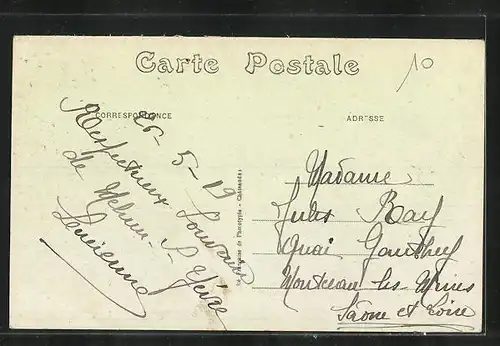 Carte Postale
10
CORRESPONDANCE
ADRESSE
26-5-19
Respectueux Souvenirs
de Mehun-s-Yèvre
Lucienne
Phototypie - Châteaudun
Madame
Jules Ray
Quai Gauthey
Montceau les Mines
Saône et Loire